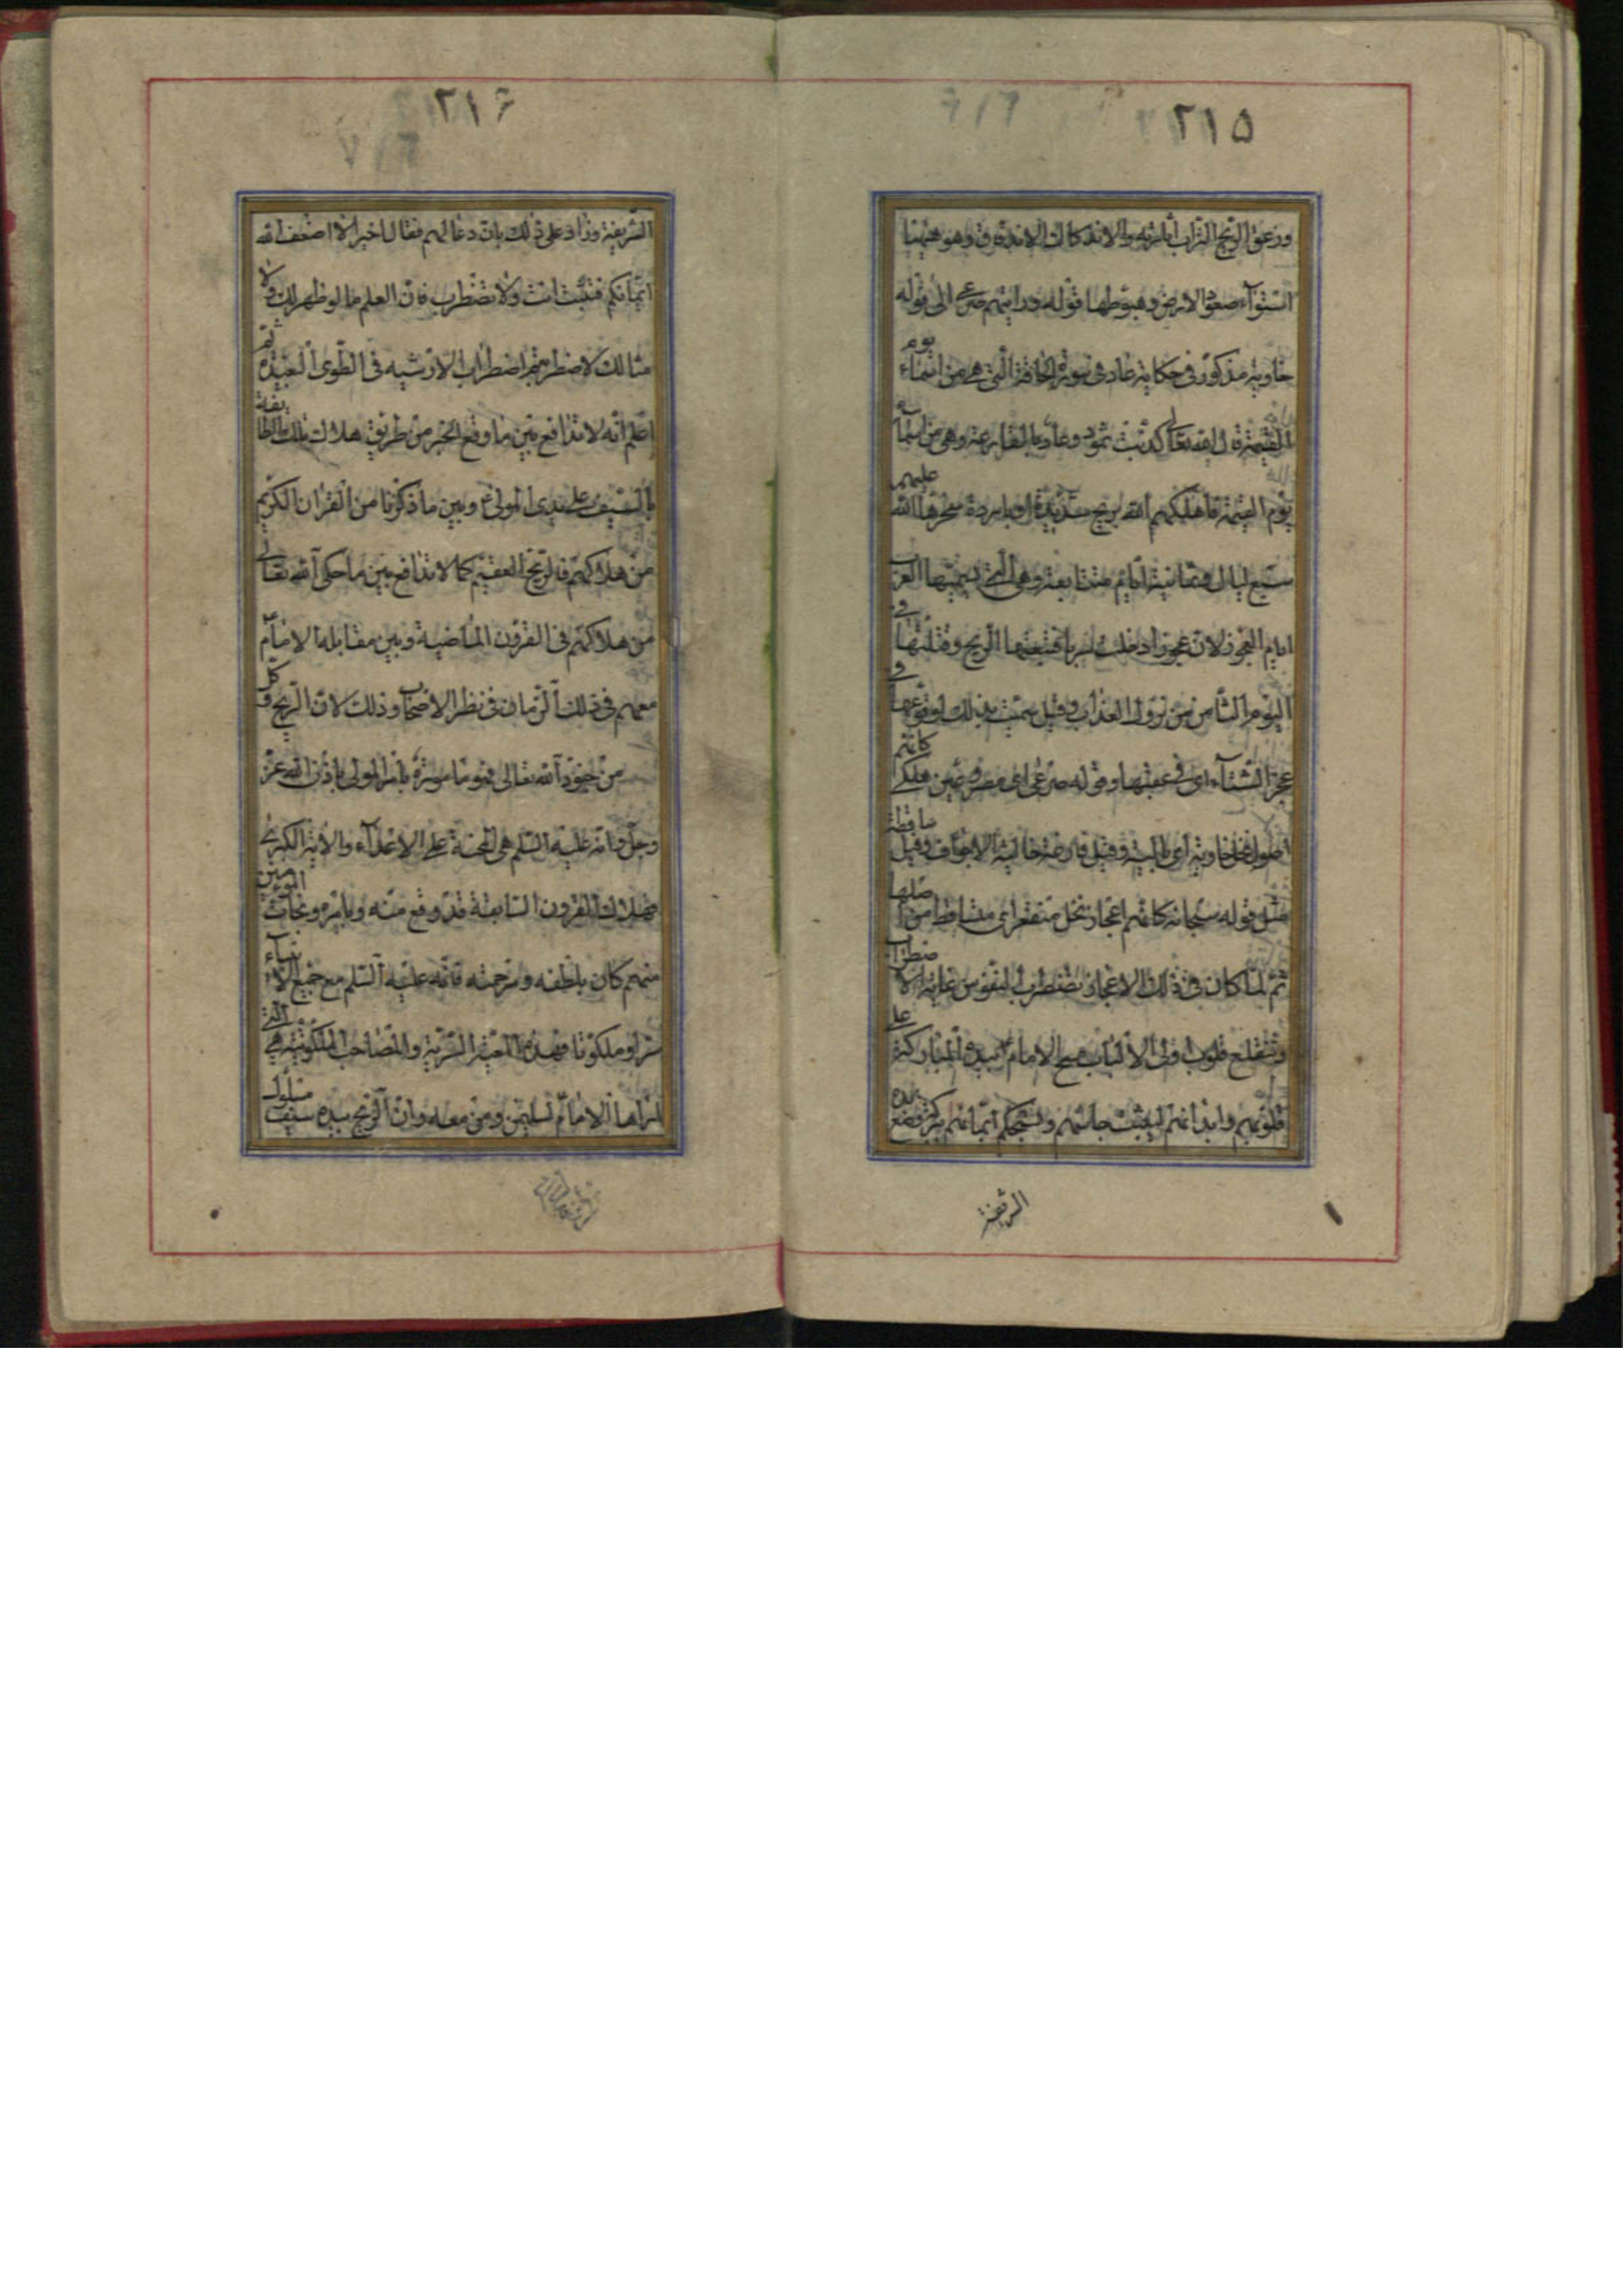 ٢١٥
وزعق الريح التراب اثارته والاندكاك الاندقاق وهو هيهنا
استواء صعود الارض وهبوطها قوله ورايتهم صرعى الى قوله
خاوية مذكور في حكاية عاد في سورة الحاقة التي هي من اسماء يوم
القيمة قال الله تعالى كذبت ثمود وعاد بالقارعة وهي من اسماء
يوم القيمة فاهلكهم الله بريح شديدة او باردة سخرها الله عليهم
سبع ليال وثمانية ايام متتابعة وهي التي تسميها العرب
ايام العجوز لان عجوزا دخلت سربا فتبعتها الريح وقتلتها في
اليوم الثامن من نزول العذاب وقيل سميت بذلك لوقوعها في
عجز الشتاء اى في عقبها وقوله صرعى اى مصروعين هلكى كانهم
اصول نخل خاوية اى بالية وقيل فارغة خالية الاجواف وقيل ساقطة
مثل قوله سبحانه كانهم اعجاز نخل منقعر اى متساقط من اصلها
ثم لما كان في ذلك الاعجاز تضطرب النفوس غاية الاضطراب
وتنقلع قلوب اولى الالباب مسح الامام بيده المباركة على
قلوبهم وابدانهم ليثبت جاشهم ويستحكم ايمانهم ببركة وضع يده
الشريفة
٢١٦
الشريفة وزاد على ذلك بان دعا لهم فقال اخيرا لا اضعف الله
ايمانكم فتثبت انت ولا تضطرب فان العلم ما لو ظهر لك ولا
مثالك لاضطربتم اضطراب الارشية في الطوى البعيدة ثم
اعلم انه لا تدافع بين ما وقع الخبر من طريق هلاك تلك الطايفة
بالسيف على يدى المولى ع وبين ما ذكرنا من القران الكريم
من هلاكهم فالريح العقيم كما لا تدافع بين ما حكى الله تعالى
من هلاكهم في القرون الماضية وبين مقابلة الامام
معهم في ذلك الزمان في نظر الاصحاب وذلك لان الريح و كل
من جنود الله تعالى فهو مامورة بامر المولى باذن الله عز
وجل وانه عليه السلم هي المحنة على الاعداء والاية الكبرى
فهلاك القرون السابقة قد وقع منه وبامره ونجات المومنين
منهم كان بلطفه ورحمته فانه عليه السلم مع جميع الانبياء
سرا وملكوتا فهذه المعية السرية والمصاحبة الملكوتية هي التي
اراها الامام لسليمن ومن معه وان الريح بيده سيف مسلول